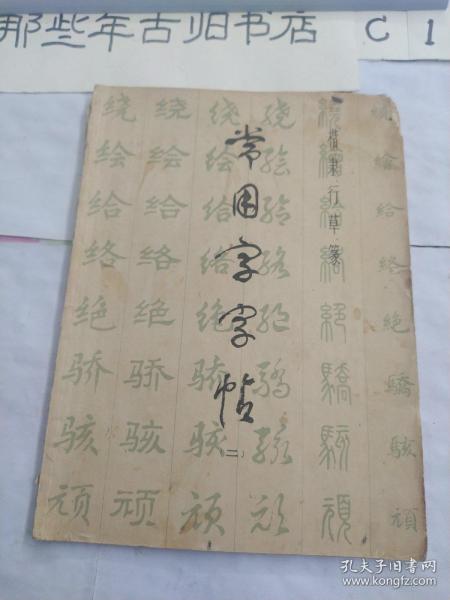 那些年古旧书店 C 1
楷隶行草篆
常用字字帖
(二)
绕 绕 绕 绕
绘 绘 绘 绘 繪
给 给 给 给 給
络 络 络 络 絡 絡
绝 绝 绝 绝 絕 絕
骄 骄 骄 骄 驕 驕
骇 骇 骇 骇 駭 駭
顽 顽 顽 顽 頑 頑
孔夫子旧书网
www.kongfz.com